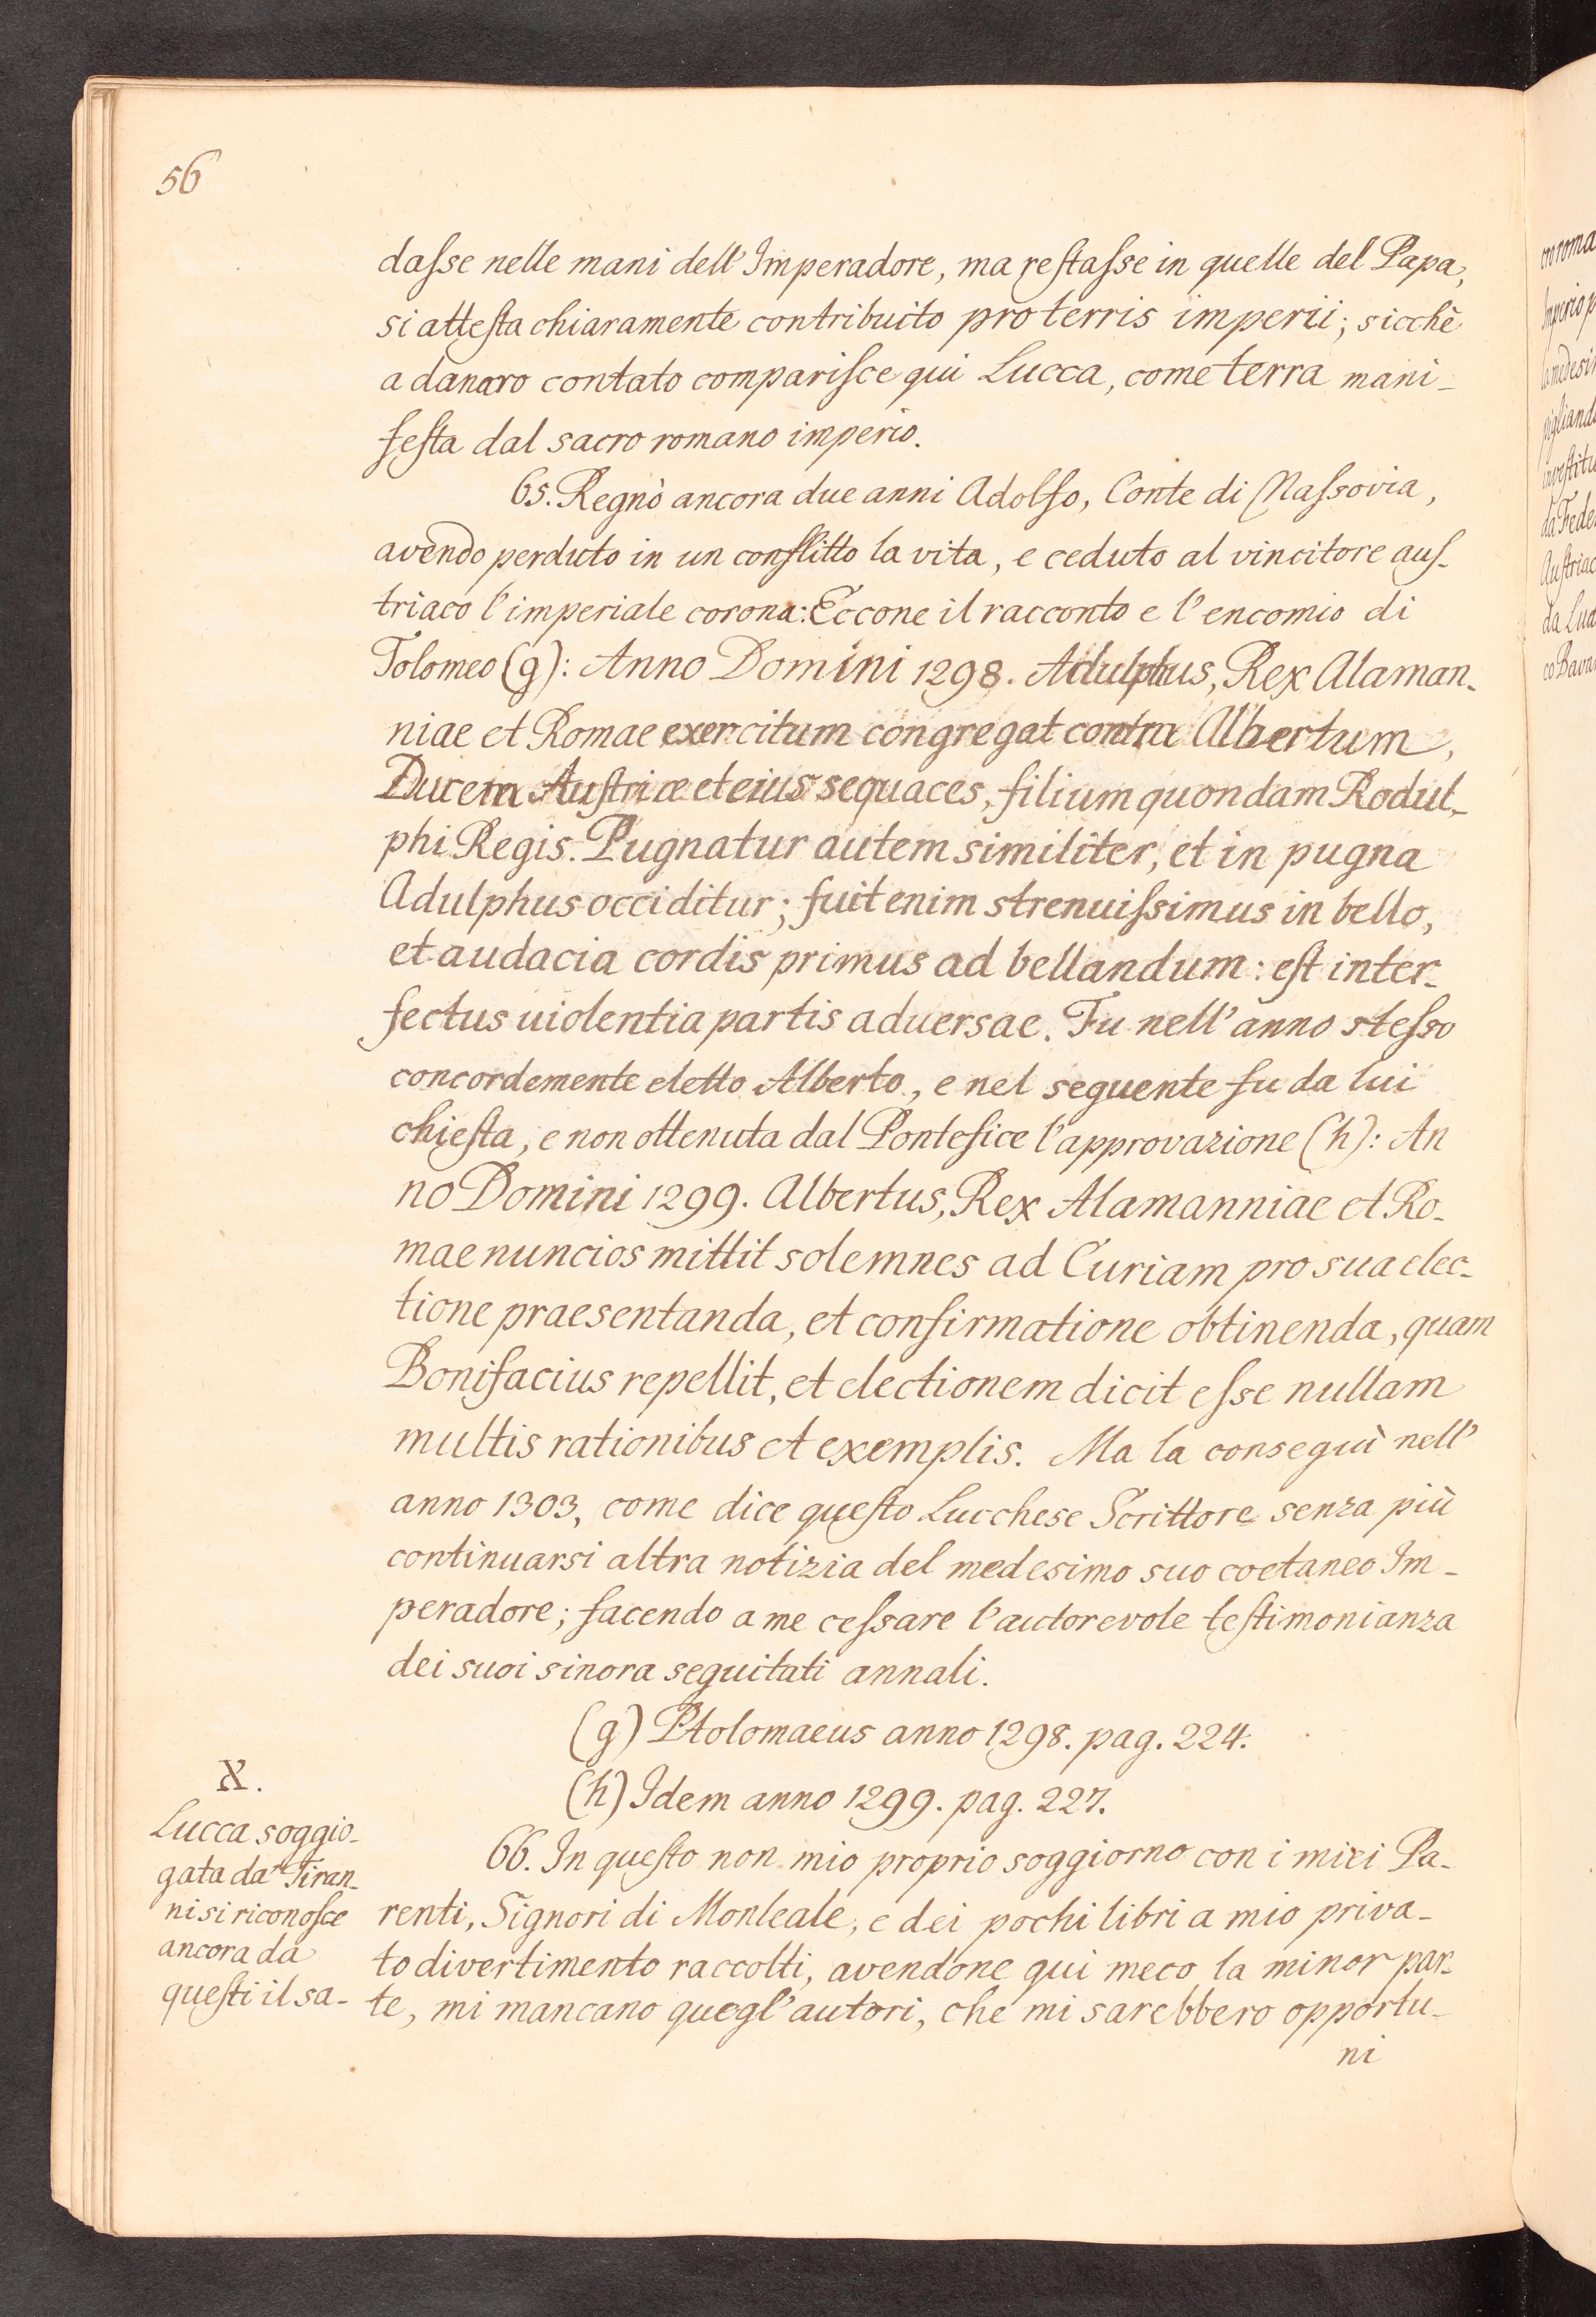 56
dasse nelle mani dell'Imperadore, ma restasse in quelle del Papa,
si attesta chiaramente contribuito pro terris imperii; sicchè
a danaro contato comparisce qui Lucca, come terra mani-
festa dal sacro romano imperio.
65. Regnò ancora due anni Adolfo, Conte di Nassovia,
avendo perduto in un conflitto la vita, e ceduto al vincitore aus-
triaco l'imperiale corona: Eccone il racconto e l'encomio di
Tolomeo (g): Anno Domini 1298. Adulphus, Rex Alaman-
niae et Romae exercitum congregat contra Albertum,
Ducem Austriæ et eius sequaces, filium quondam Rodul-
phi Regis. Pugnatur autem similiter, et in pugna
Adulphus occiditur; fuit enim strenuissimus in bello,
et audacia cordis primus ad bellandum: est inter-
fectus uiolentia partis aduersae. Fu nell'anno stesso
concordemente eletto Alberto, e nel seguente fu da lui
chiesta, e non ottenuta dal Pontefice l'approvazione (h): An
no Domini 1299. Albertus, Rex Alamanniae et Ro-
mae nuncios mittit solemnes ad Curiam pro sua elec-
tione praesentanda, et confirmatione obtinenda, quam
Bonifacius repellit, et electionem dicit esse nullam
multis rationibus et exemplis. Ma la conseguì nell'
anno 1303, come dice questo Lucchese Scrittore senza più
continuarsi altra notizia del medesimo suo coetaneo Im-
peradore; facendo a me cessare l'autorevole testimonianza
dei suoi sinora seguitati annali.
(g) Ptolomaeus anno 1298. pag. 224.
(h) Idem anno 1299. pag. 227.
X.
Lucca soggio-
gata da' Tiran-
ni si riconosce
ancora da
questi il sa-
66. In questo non mio proprio soggiorno con i miei Pa-
renti, Signori di Monleale, e dei pochi libri a mio priva-
to divertimento raccolti, avendone qui meco la minor par-
te, mi mancano quegl'autori, che mi sarebbero opportu-
ni